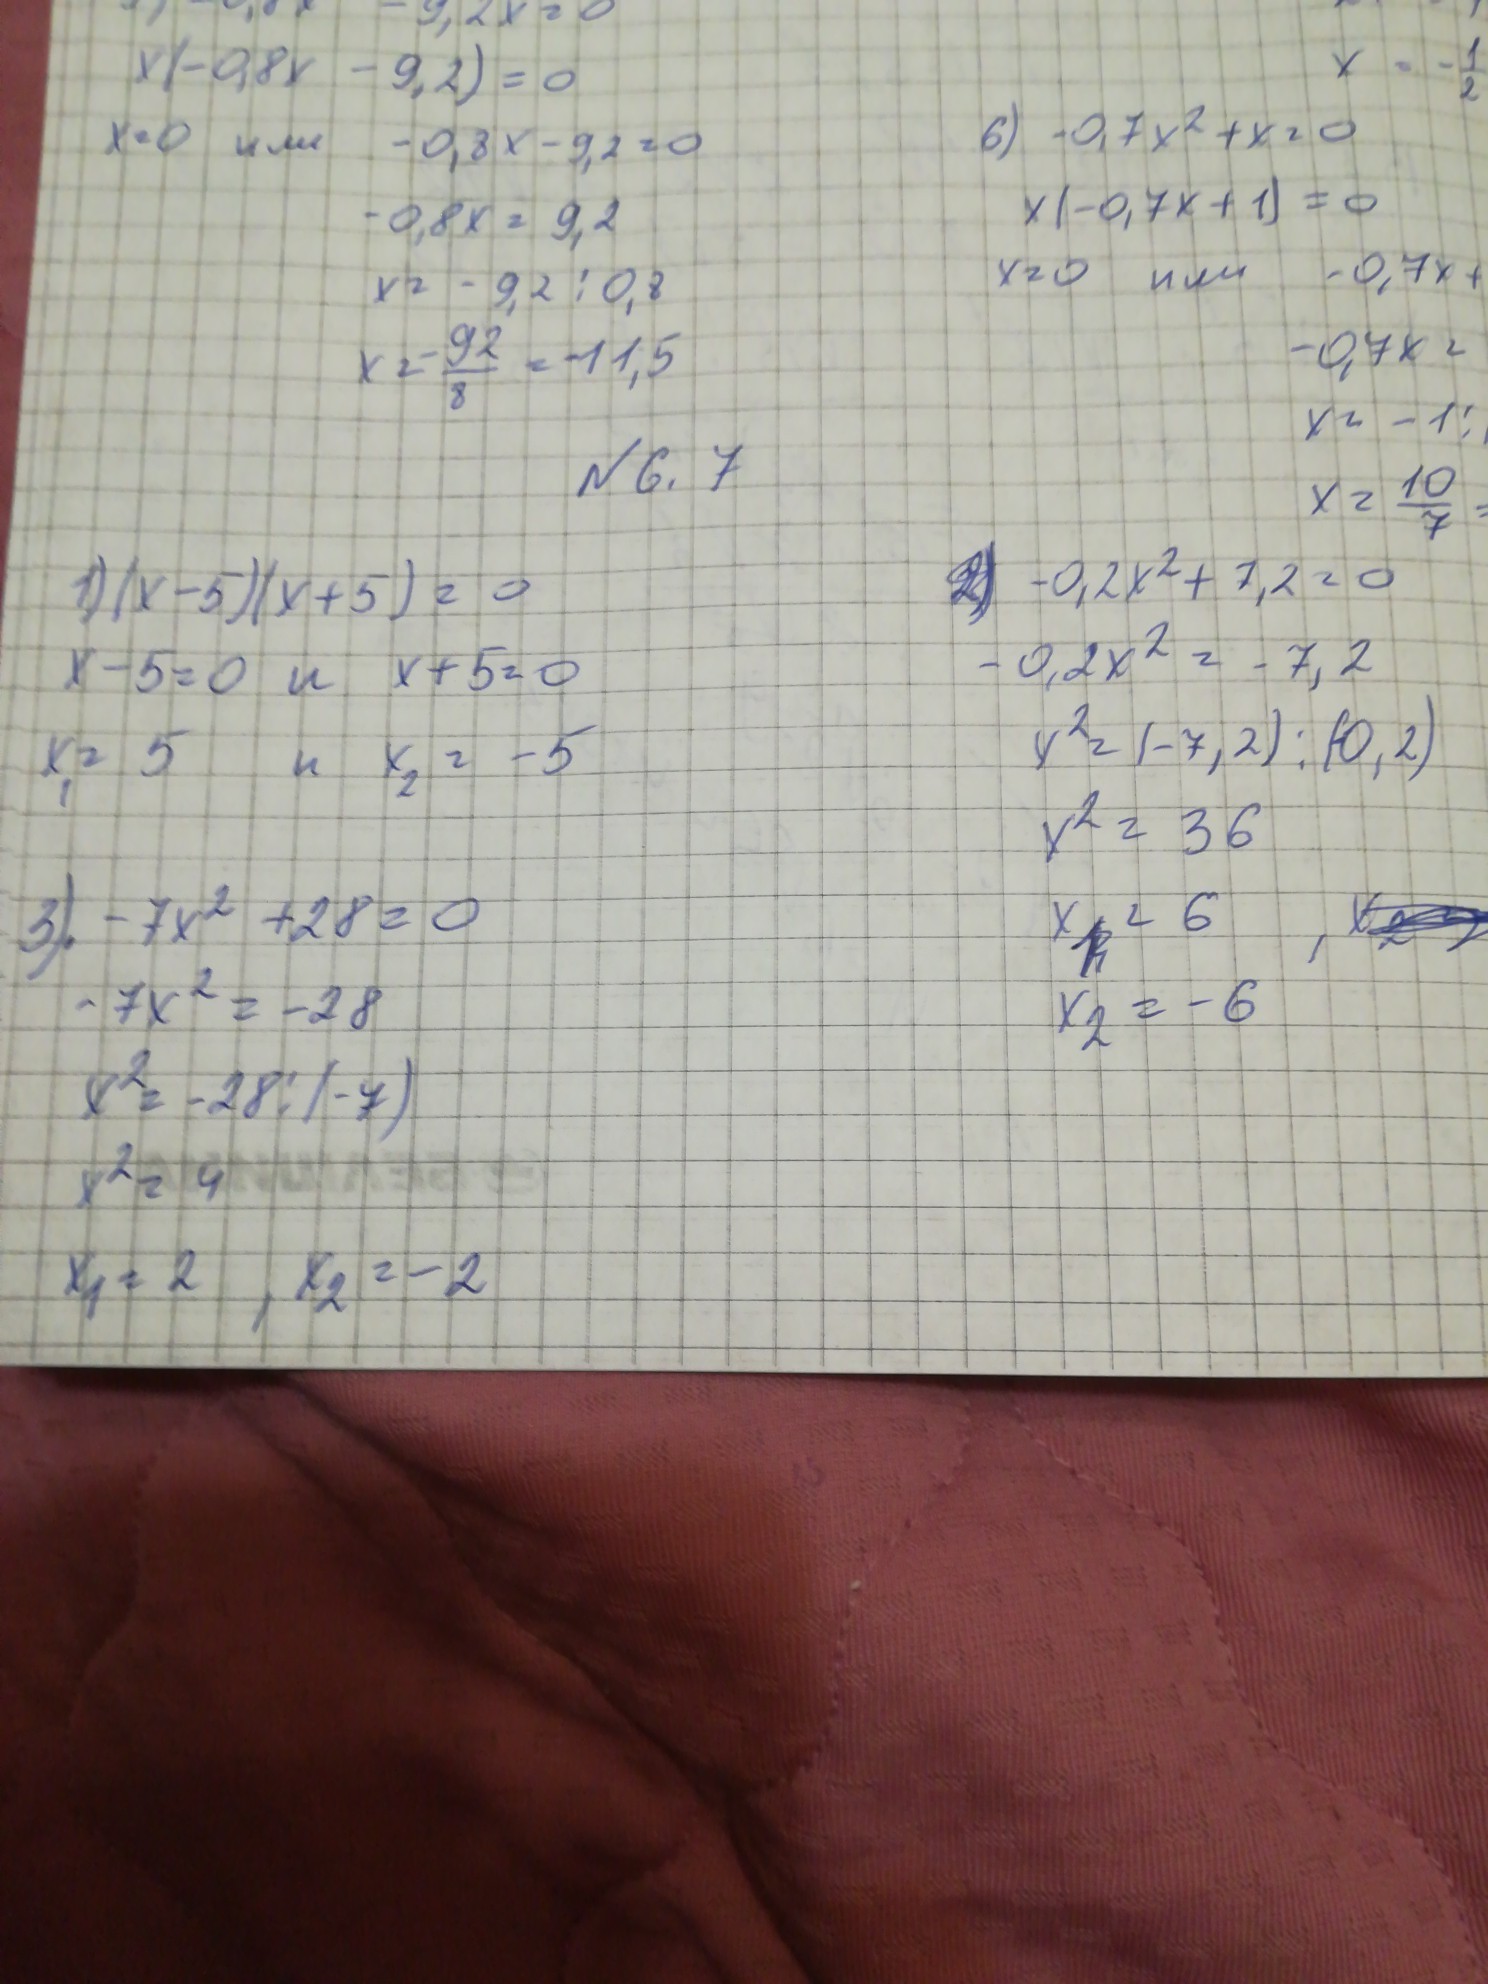 -9,2x=0
x(-0,8x -9,2)=0
x=0 или -0,8x-9,2=0
-0,8x=9,2
x= -9,2:0,8
x=-92/8=-11,5
x = -1/2
6) -0,7x²+x=0
x(-0,7x+1)=0
x=0 или -0,7x+
-0,7x=
x= -1:
x= 10/7 =
№6.7
1)(x-5)(x+5)=0
x-5=0 и x+5=0
x₁=5 и x₂=-5
2) -0,2x²+7,2=0
-0,2x²=-7,2
x²=(-7,2):(-0,2)
x²=36
x₁=6 ,
x₂=-6
3). -7x²+28=0
-7x²=-28
x²=-28:(-7)
x²=4
x₁=2 , x₂=-2